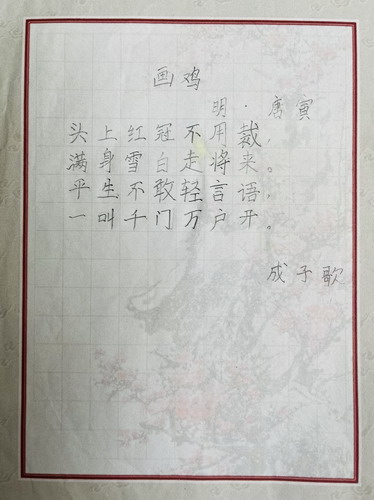 画鸡
明·唐寅
头上红冠不用裁，
满身雪白走将来。
平生不敢轻言语，
一叫千门万户开。
成子歌